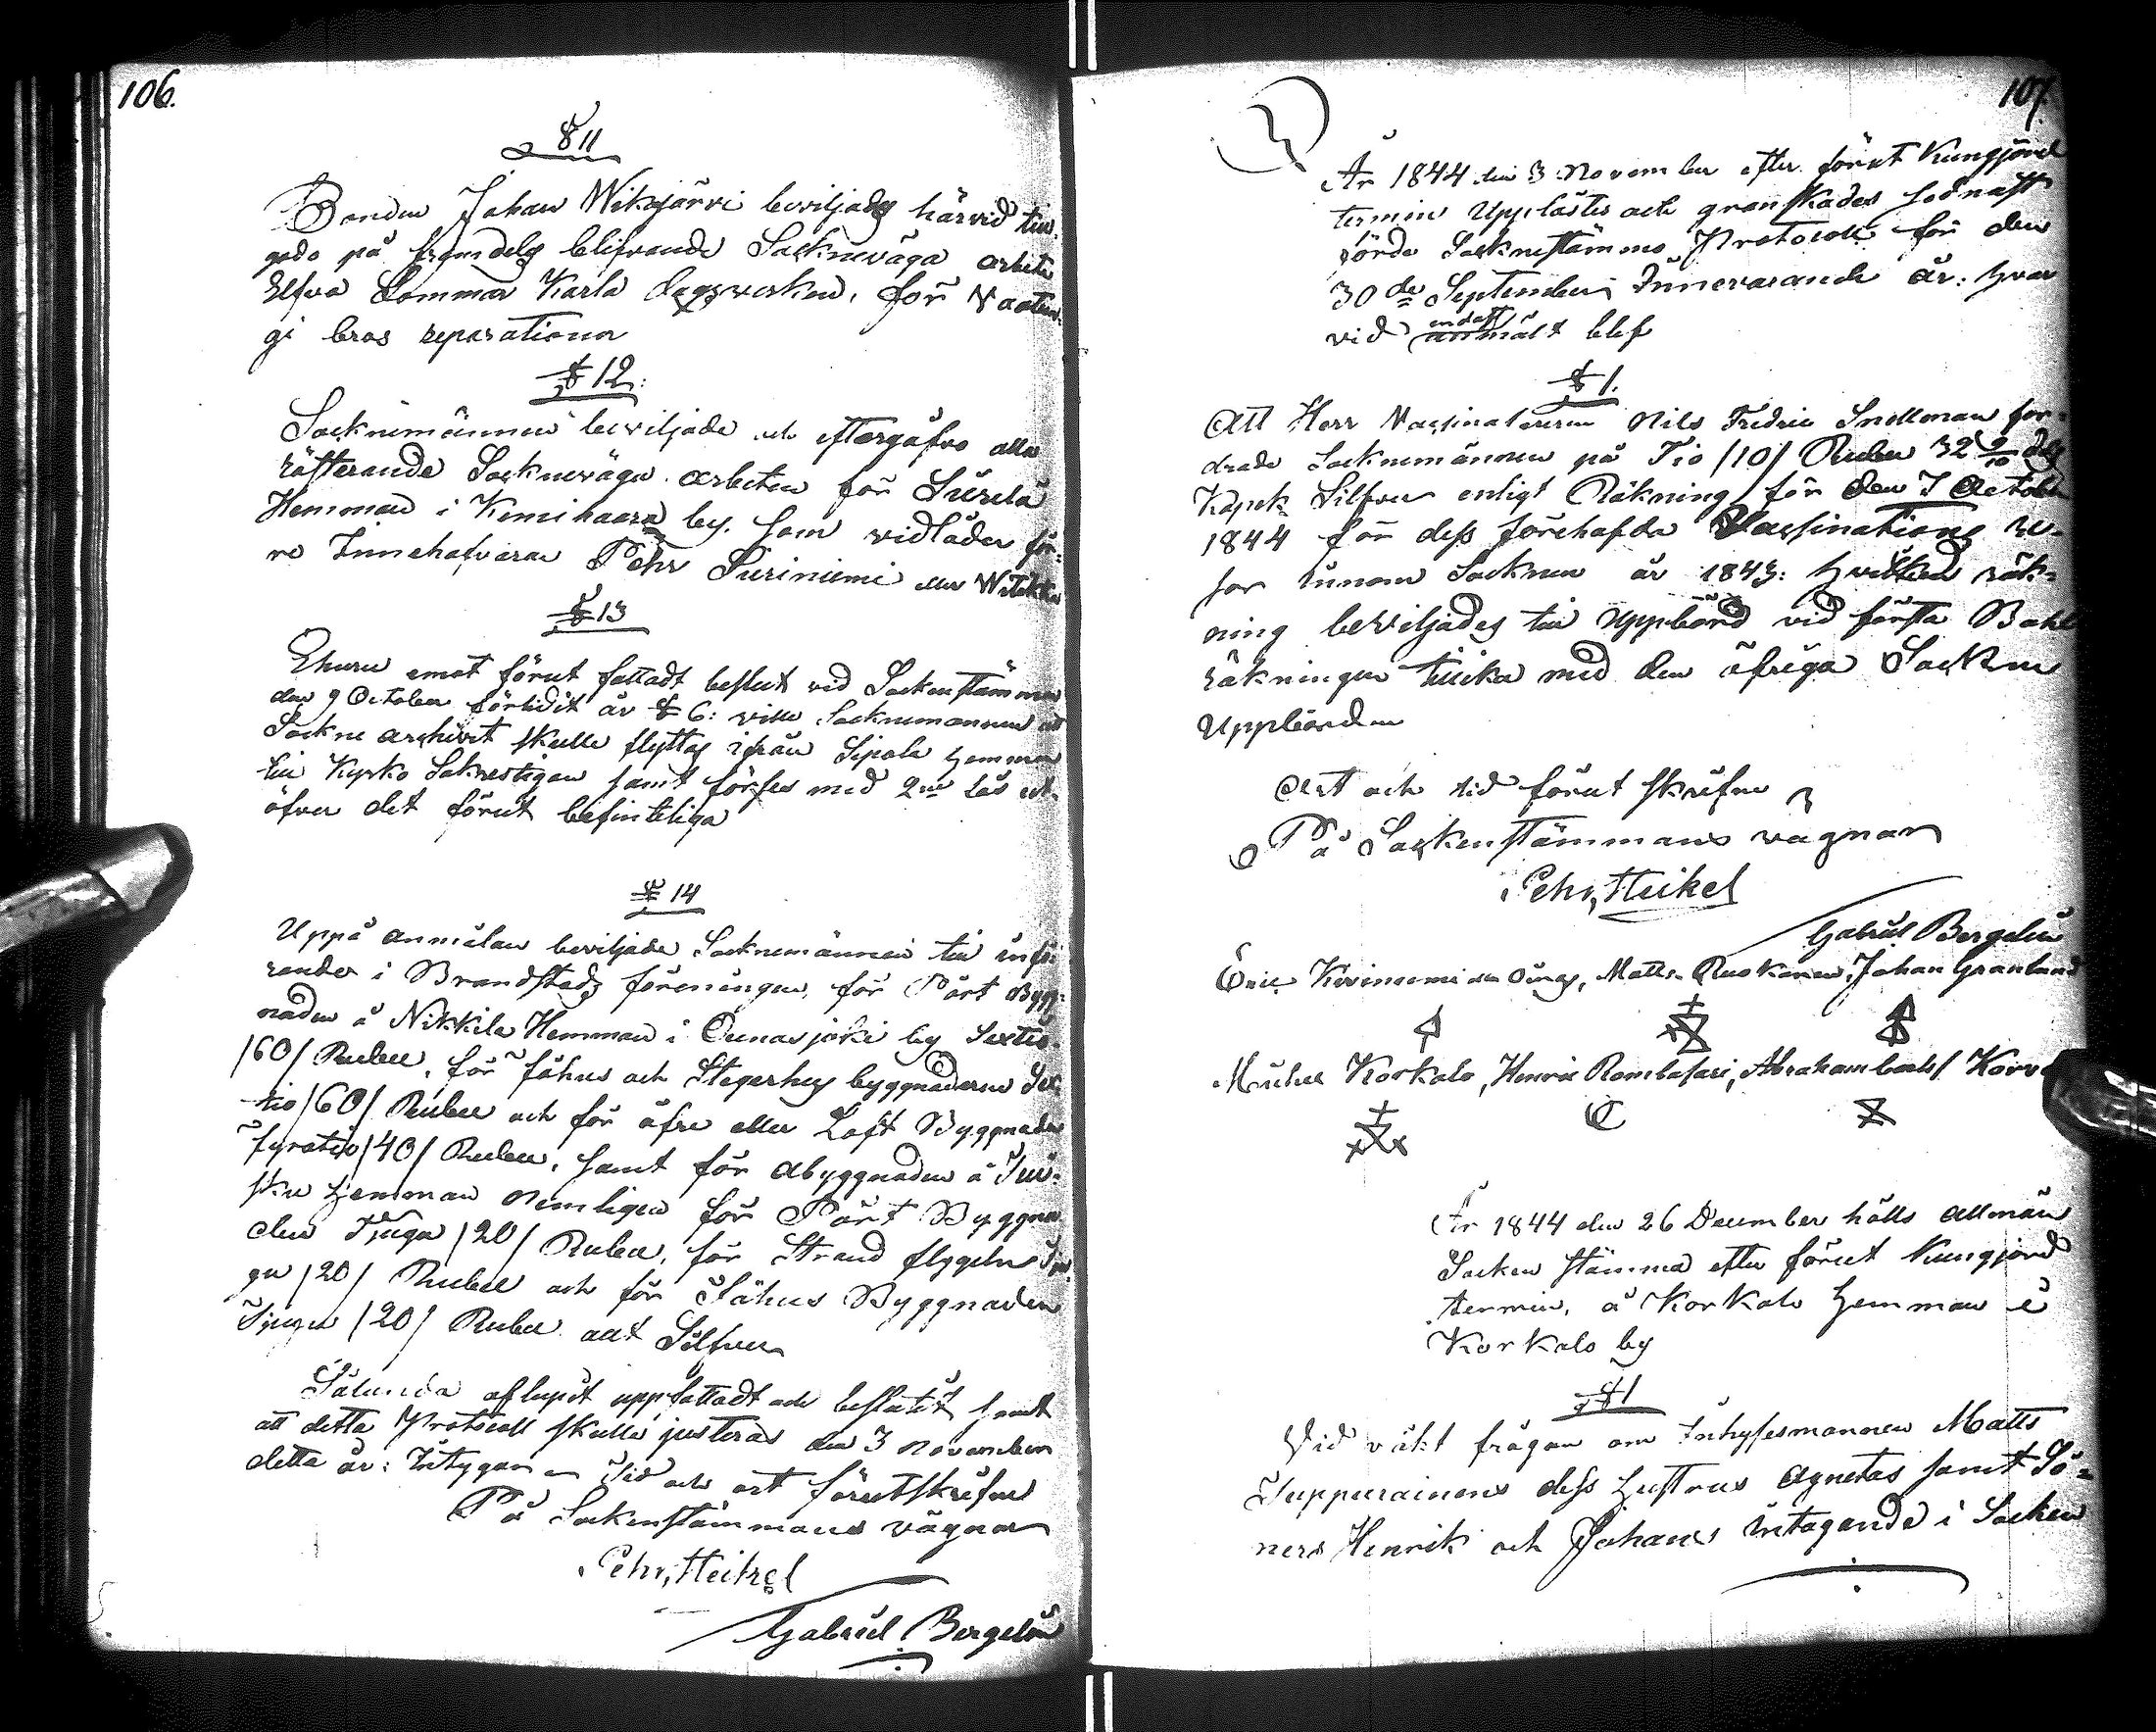 106.
§ 11
Bonden Johan Wikajärvi beviljades härvid tin-
gado på framdels blifvande Sockneväga arbete
Elfva Sommar Karla dagsverken, för
gi bros reparationer
§ 12.
Socknemännen beviljade och eftergåfvo alla
resterande Sockneväga arbeten för
Hemman i Kemihaara by. som vidlåder för-
re Innehafvaren Pehr Siiriniemi eller
§ 13
Ehuru emot förut fattadt beslut vid Sockenstämman
den 9 October förlidit år § 6: ville Socknemännen att
Sockne archivet skulle flyttas ifrån Sipola Hemman
till Kyrko Sakrestigan samt förses med 2ne Lås ut-
öfver det förut befinteliga
§ 14
Uppå anmälan beviljade Socknemännen till införan-
rande i Brandstods föreningen, för Pört Bygg-
naden å Nikkila Hemman i Ounasjoki by Sextio
/60/ Rubel, för fähus och Stegerhus byggnaderne Sex-
tio /60/ Rubel och för öfre eller Loft Byggnaden
fyratio /40/ Rubel, samt för Åbyggnaden å
Hemman nemligen för Pört Byggna-
den Tjugo /20/ Rubel, för Strand flygeln Tju-
gu /20/ Rubel och för Fähus Byggnaden
Tjugu /20/ Rubel allt Silfver
Sålunda aflupit uppfattadt och beslutit samt
att detta Protocoll skulle justeras den 3 November
detta år: Intygar Tid och ort förutskrifne
På Sockenstämmans vägnar
Pehr, Heikel
Gabriel Bergelin
107.
År 1844 den 3 November efter förut Kungjord
termin Upplästes och granskades sednast
förde Sockenstämmo Protocoll för den
30de September Innevarande år: hvar
vid endast anmält blef
§ 1.
Att Herr Vaccinateuren Nils Fredric Snellman for-
drade Socknemännen på Tio /10/ Rubel 32 9/10 dels
Kopek Silfver enligt Räkning för den 7 October
1844 för dess förehafda Vaccinations re-
sor innom Socknen år 1843: hvilken räk-
ning beviljades till Uppbörd vid första Bohl
räkningen tillika med den öfriga Sockne
Uppbörden
Ort och tid förut skrifne
På Sockenstämmans vägnar
Pehr, Heikel
Gabriel Bergelin
Eric Kiviniemi Matts Ruokanen, Johan Granlund
Michel Korkalo, Henric Rombasari, Abraham Carls/ Korva
År 1844 den 26 December hölls allmän
Socken stämma efter förut Kungjord
termin, å Korkalo Hemman i
Korkalo by
§ 1
Vid väkt frågan om Inhysesmannen Matts
Juppurainens dess hustrus Agnetas samt Sö-
ners Henrik och Johans intagande i Socken